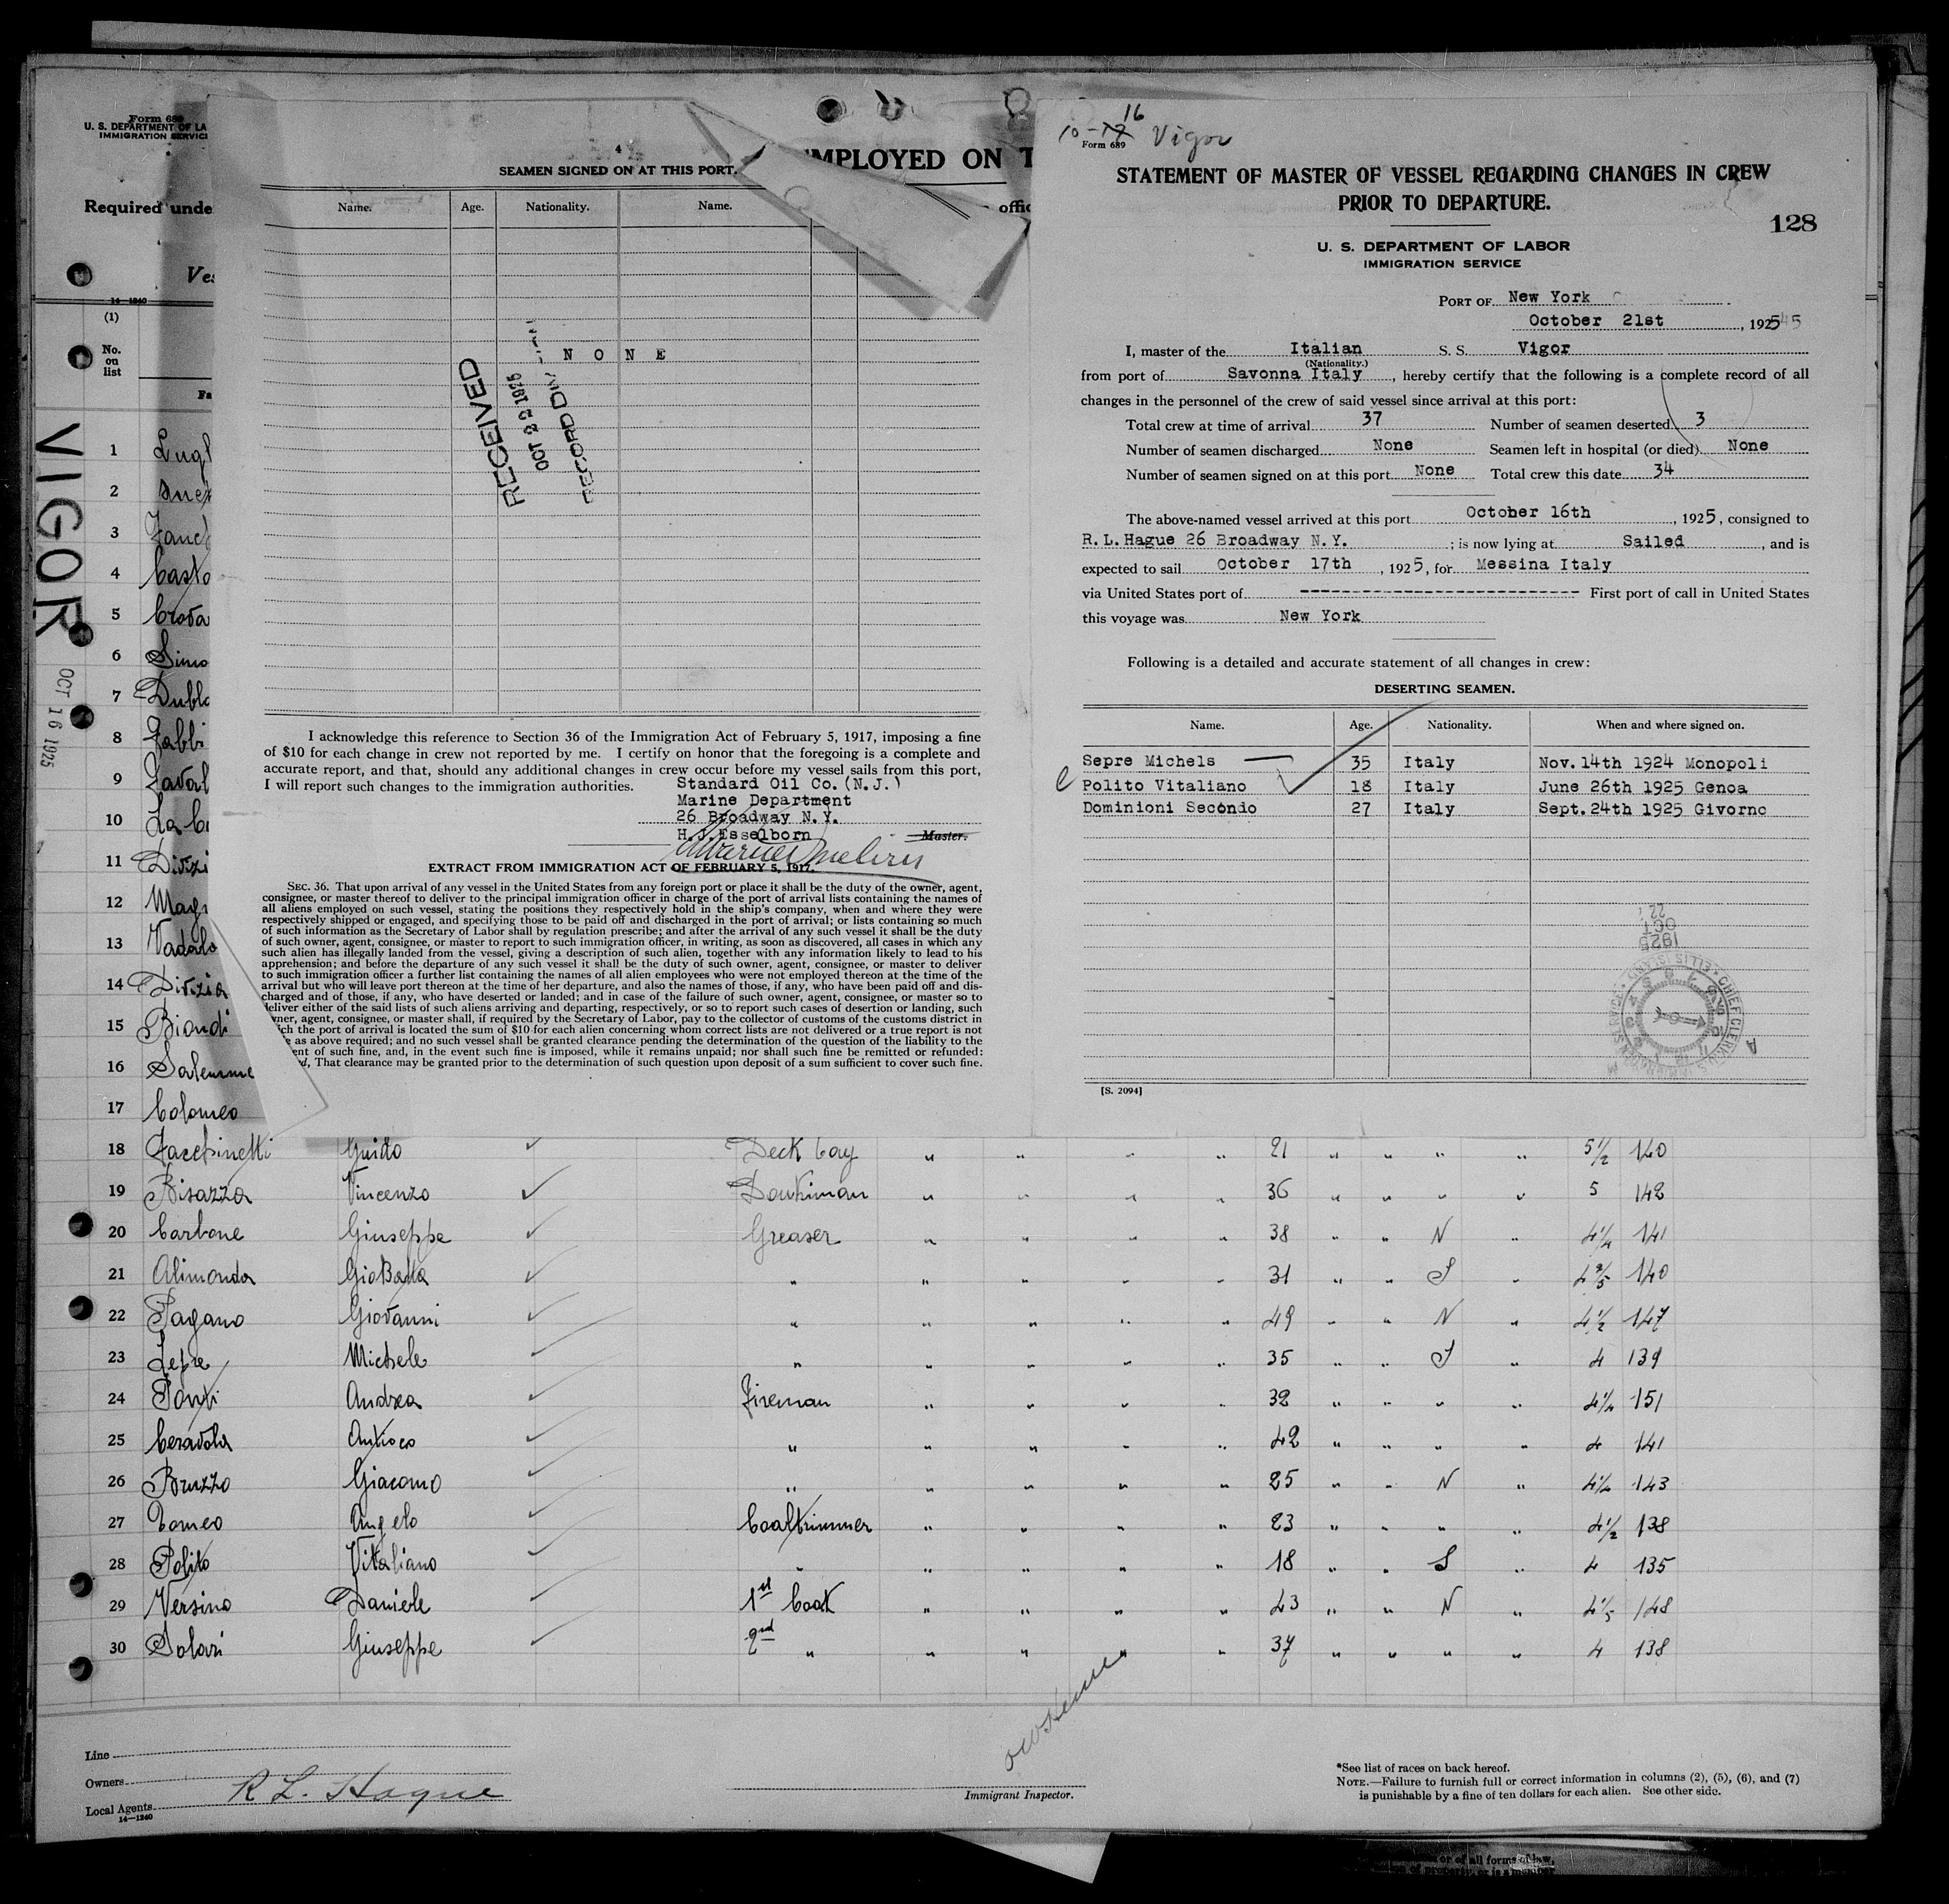 Form 689
U. S. DEPARTMENT OF LA
IMMIGRATION SERVICE
Required unde
Ves
14—1240
(1)
No. on list
Fa
VIGOR
OCT 16 1925
1 Lugl
2
3
4 Casto
5 Crova
6 Simo
7 Dublo
8 Gabbi
9 Laval
10 La Ca
11 Divizi
12 Mag
13 Vadala
14 Divizia
15 Biondi
16 Salemme
17 Colomeo
MPLOYED ON T
offic
4
SEAMEN SIGNED ON AT THIS PORT.
Name. Age. Nationality. Name.
N O N E
RECEIVED
OCT 22 1925
RECORD DIV
I acknowledge this reference to Section 36 of the Immigration Act of February 5, 1917, imposing a fine
of $10 for each change in crew not reported by me. I certify on honor that the foregoing is a complete and
accurate report, and that, should any additional changes in crew occur before my vessel sails from this port,
I will report such changes to the immigration authorities.
Standard Oil Co.(N.J.)
Marine Department
26 Broadway N.Y.
H.J.Esselborn Master.
EXTRACT FROM IMMIGRATION ACT OF FEBRUARY 5, 1917.
SEC. 36. That upon arrival of any vessel in the United States from any foreign port or place it shall be the duty of the owner, agent,
consignee, or master thereof to deliver to the principal immigration officer in charge of the port of arrival lists containing the names of
all aliens employed on such vessel, stating the positions they respectively hold in the ship's company, when and where they were
respectively shipped or engaged, and specifying those to be paid off and discharged in the port of arrival; or lists containing so much
of such information as the Secretary of Labor shall by regulation prescribe; and after the arrival of any such vessel it shall be the duty
of such owner, agent, consignee, or master to report to such immigration officer, in writing, as soon as discovered, all cases in which any
such alien has illegally landed from the vessel, giving a description of such alien, together with any information likely to lead to his
apprehension; and before the departure of any such vessel it shall be the duty of such owner, agent, consignee, or master to deliver
to such immigration officer a further list containing the names of all alien employees who were not employed thereon at the time of the
arrival but who will leave port thereon at the time of her departure, and also the names of those, if any, who have been paid off and dis-
charged and of those, if any, who have deserted or landed; and in case of the failure of such owner, agent, consignee, or master so to
deliver either of the said lists of such aliens arriving and departing, respectively, or so to report such cases of desertion or landing, such
wner, agent, consignee, or master shall, if required by the Secretary of Labor, pay to the collector of customs of the customs district in
ich the port of arrival is located the sum of $10 for each alien concerning whom correct lists are not delivered or a true report is not
e as above required; and no such vessel shall be granted clearance pending the determination of the question of the liability to the
ent of such fine, and, in the event such fine is imposed, while it remains unpaid; nor shall such fine be remitted or refunded:
d, That clearance may be granted prior to the determination of such question upon deposit of a sum sufficient to cover such fine.
16
10-17 Vigor
Form 689
STATEMENT OF MASTER OF VESSEL REGARDING CHANGES IN CREW
PRIOR TO DEPARTURE.
128
U. S. DEPARTMENT OF LABOR
IMMIGRATION SERVICE
PORT OF New York
October 21st, 1925
I, master of the Italian S. S. Vigor
(Nationality.)
from port of Savonna Italy, hereby certify that the following is a complete record of all
changes in the personnel of the crew of said vessel since arrival at this port:
Total crew at time of arrival 37 Number of seamen deserted 3
Number of seamen discharged None Seamen left in hospital (or died) None
Number of seamen signed on at this port None Total crew this date 34
The above-named vessel arrived at this port October 16th, 1925, consigned to
R.L.Hague 26 Broadway N.Y. ; is now lying at Sailed, and is
expected to sail October 17th, 1925, for Messina Italy
via United States port of ---------------------------- First port of call in United States
this voyage was New York
Following is a detailed and accurate statement of all changes in crew:
DESERTING SEAMEN.
Name. Age. Nationality. When and where signed on.
Sepre Michels 35 Italy Nov.14th 1924 Monopoli
Polito Vitaliano 18 Italy June 26th 1925 Genoa
Dominioni Secondo 27 Italy Sept.24th 1925 Givorno
22
OCT
1925
CHIEF CLERK U.S. IMMIGRATION SERVICE ELLIS ISLAND
[S. 2094]
18 Facchinetti Guido Deck boy " " " " 21 " " " " 5 1/2 140
19 Bisazza Vincenzo Donkiman " " " " 36 " " " " 5 142
20 Carbone Giuseppe Greaser " " " " 38 " " N " 4 1/4 141
21 Alimonda GioBatta " " " " " 31 " " S " 4 2/5 140
22 Pagano Giovanni " " " " " 49 " " N " 4 1/2 147
23 Lepre Michele " " " " " 35 " " S " 4 139
24 Ponti Andrea Fireman " " " " 32 " " " " 4 1/4 151
25 Ceravola Antioco " " " " " 42 " " " " 4 141
26 Bruzzo Giacomo " " " " " 25 " " N " 4 1/4 143
27 Tomeo Angelo Coaltrimmer " " " " 23 " " " " 4 1/2 138
28 Polito Vitaliano " " " " " 18 " " S " 4 135
29 Versino Daniele 1st Cook " " " " 43 " " N " 4 1/5 148
30 Solari Giuseppe 2nd " " " " " 37 " " " " 4 138
Line
Owners
Local Agents R L. Hague
14—1240
Immigrant Inspector.
*See list of races on back hereof.
NOTE.—Failure to furnish full or correct information in columns (2), (5), (6), and (7)
is punishable by a fine of ten dollars for each alien. See other side.
or of all forms of law,